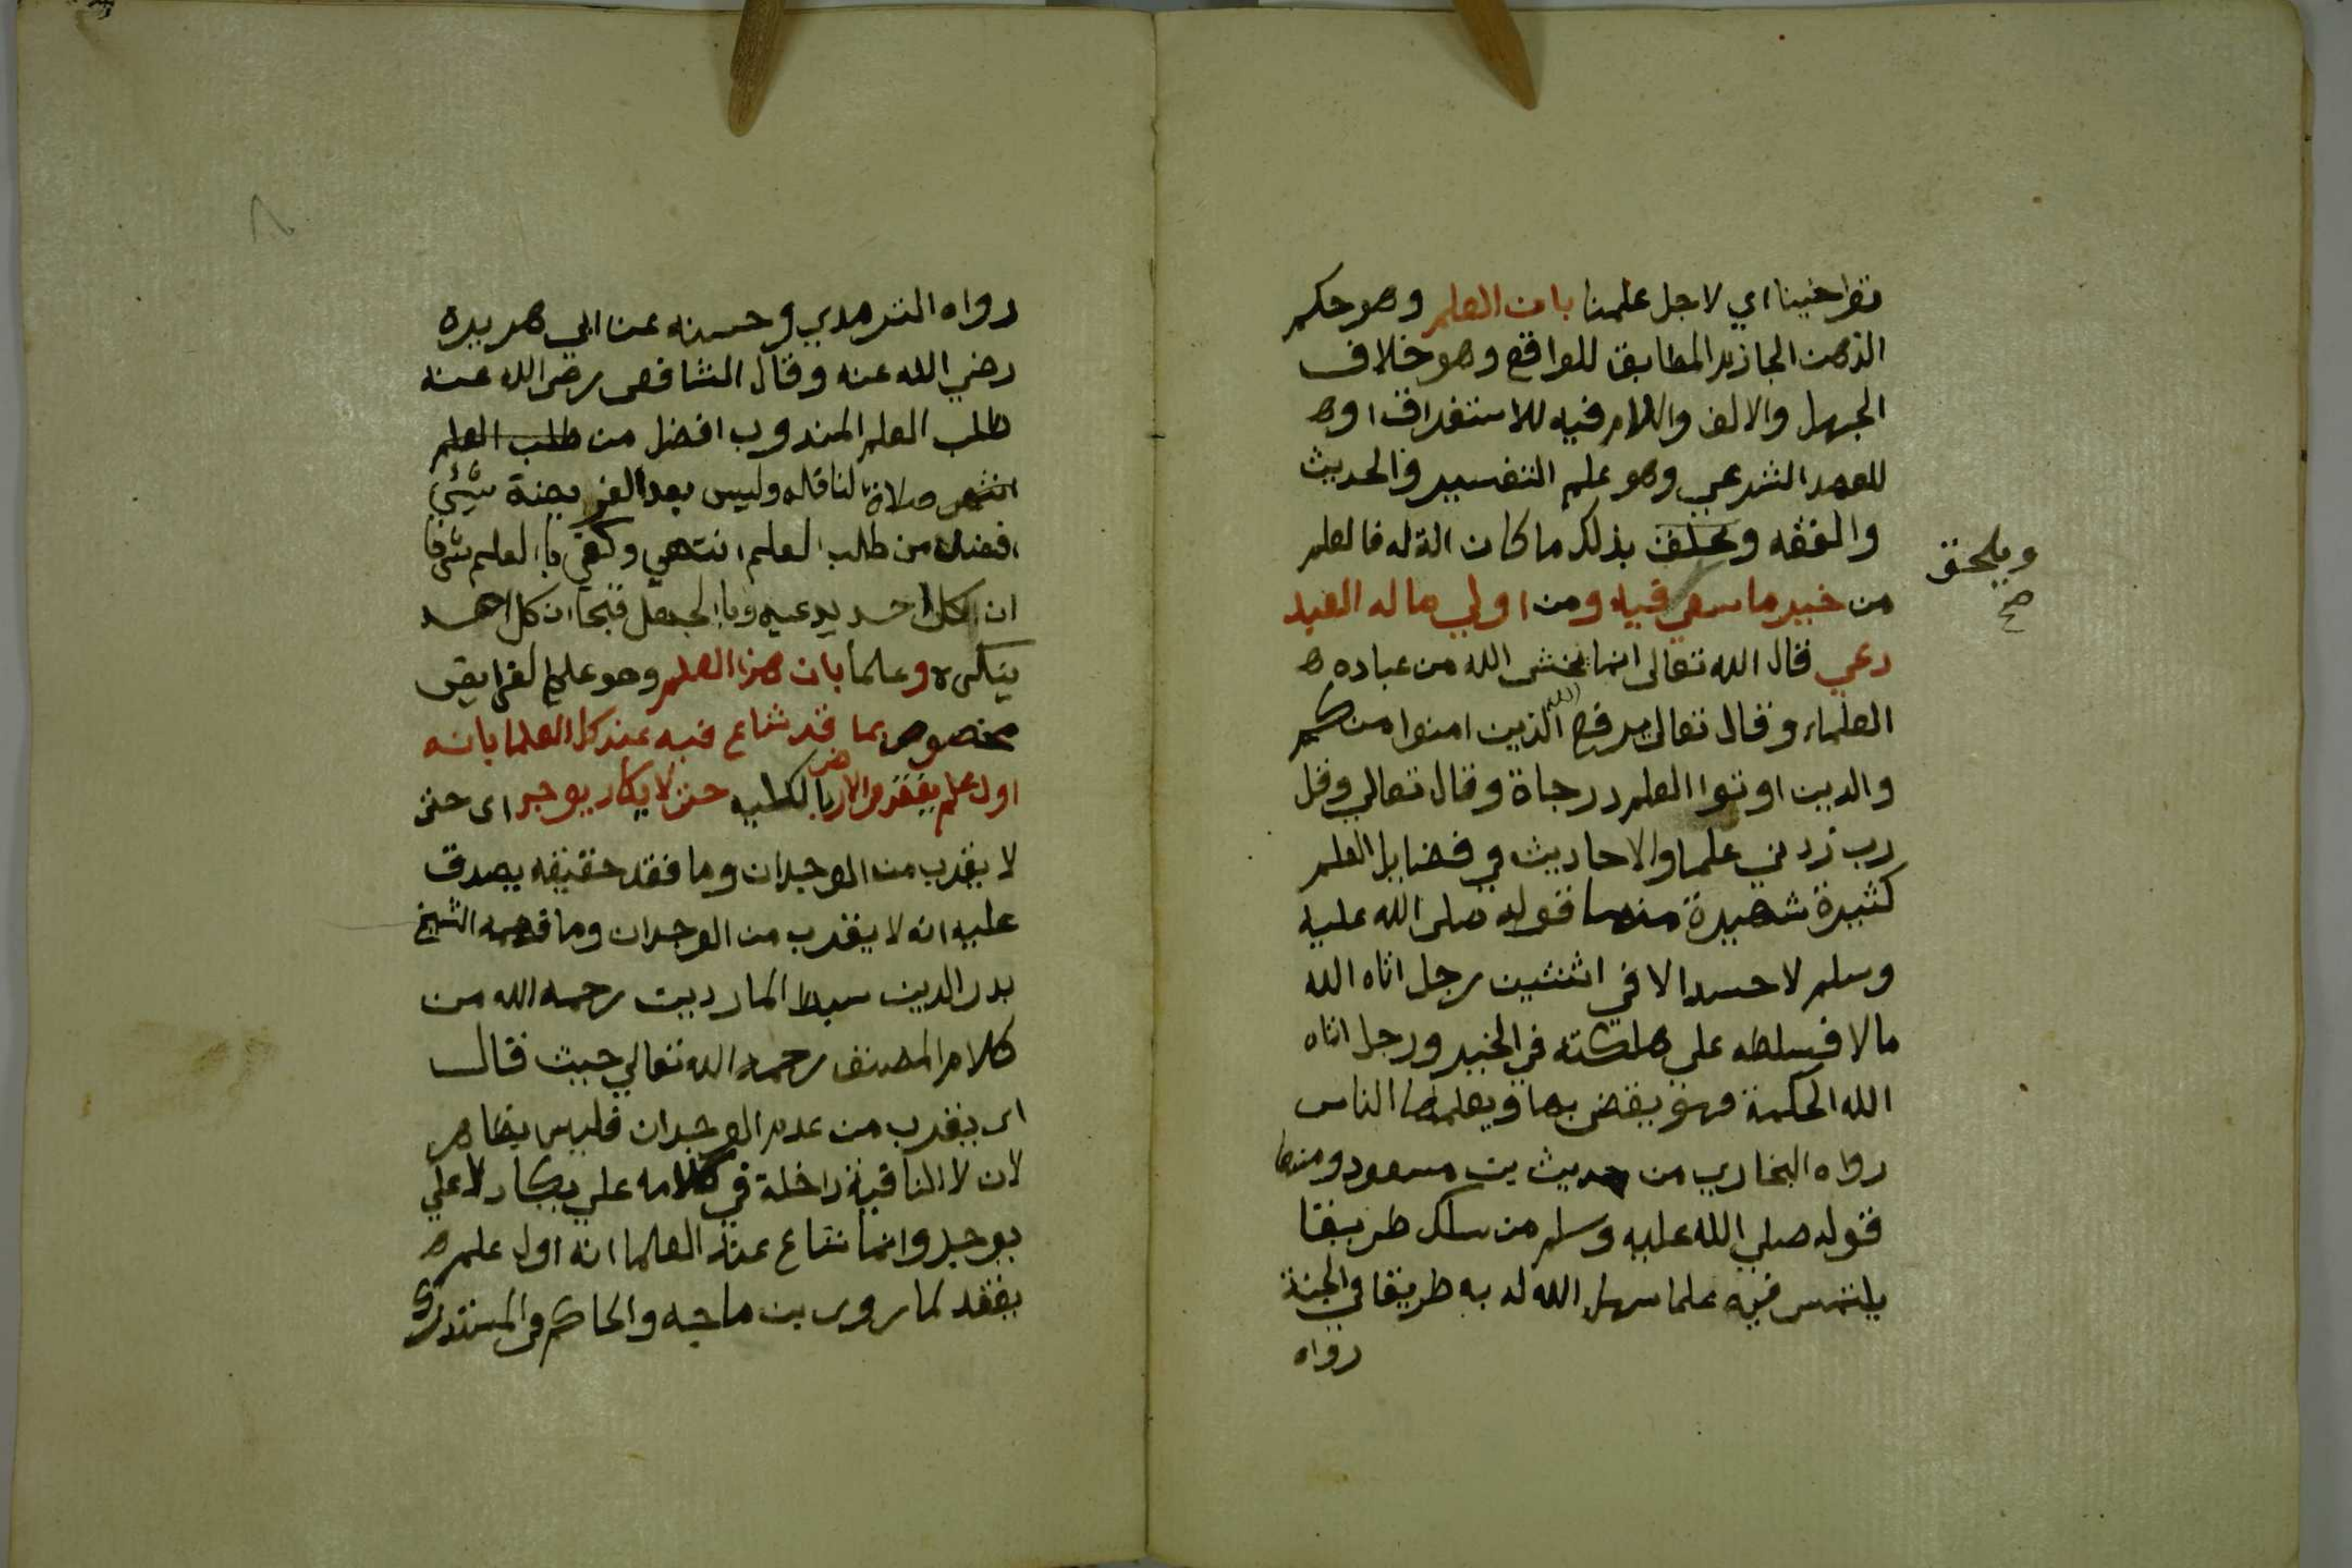 تواخينا اي لاجل علمنا بان العلم وهو حكم
الذهن الجازم المطابق للواقع وهو خلاف
الجهل والالف واللام فيه للاستغراق او
للعهد الشرعي وهو علم التفسير والحديث
والفقه بذلك ما كان الة له فالعلم
ويلحق
صح
من خير ما سعي فيه ومن اولي ما له العبد
دعي قال الله تعالى انما يخشى الله من عباده
العلماء وقال تعالى يرفع الله الذين امنوا منكم
والدين اوتوا العلم درجاة وقال تعالي وقل
رب زدني علما والاحاديث في فضايل العلم
كثيرة شهيرة منها قوله صلى الله عليه
وسلم لا حسد الا في اثنتين رجل اتاه الله
مالا فسلطه على هلكته في الخير ورجل اتاه
الله الحكمة فهو يقضى بها ويعلمها الناس
رواه البخاري من حديث بن مسعود ومنها
قوله صلي الله عليه وسلم من سلك طريقا
يلتمس فيه علما سهل الله له به طريقا في الجنة
رواه
رواه الترمدي وحسنه عن ابي هريرة
رضي الله عنه وقال الشافعى رضى الله عنه
طلب العلم المندوب افضل من طلب العلم
صلاة لنافله وليس بعد الفريضة شيئي
افضل من طلب العلم انتهي وكفي باالعلم شرفا
ان كل احد يدعيه وباالجهل قبحا ان كل احد
ينكره وعلما بان هذا العلم وهو علم الفرايض
مخصوص بما قد شاع فيه عند كل العلما بانه
اول علم يفقد في الارض باالكليه حتى لا يكاد يوجد اى حتى
لا يقرب من الوجدان وما فقد حقيقه يصدق
عليه انه لا يقرب من الوجدان وما فهمه الشيخ
بدر الدين سبط المارديت رحمه الله من
كلام المصنف رحمه الله تعالي حيث قال
اى يقرب من عدم الوجدان فليس بظاهر
لان لا النافية داخلة في كلامه علي يكاد لا علي
يوجد وانما شاع عند العلما انه اول علم
يفقد لما روى بن ماجه والحاكم في المستدرك